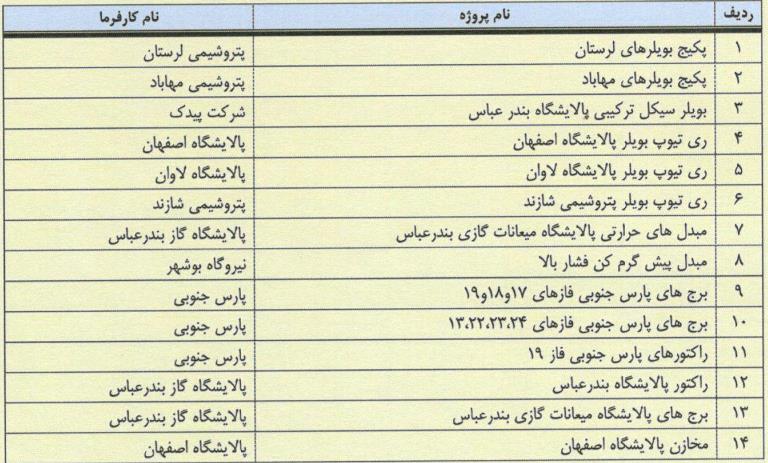 ردیف نام پروژه نام کارفرما
۱ پکیج بویلرهای لرستان پتروشیمی لرستان
۲ پکیج بویلرهای مهاباد پتروشیمی مهاباد
۳ بویلر سیکل ترکیبی پالایشگاه بندر عباس شرکت پیدک
۴ ری تیوپ بویلر پالایشگاه اصفهان پالایشگاه اصفهان
۵ ری تیوپ بویلر پالایشگاه لاوان پالایشگاه لاوان
۶ ری تیوپ بویلر پتروشیمی شازند پتروشیمی شازند
۷ مبدل های حرارتی پالایشگاه میعانات گازی بندرعباس پالایشگاه گاز بندرعباس
۸ مبدل پیش گرم کن فشار بالا نیروگاه بوشهر
۹ برج های پارس جنوبی فازهای ۱۷و۱۸و۱۹ پارس جنوبی
۱۰ برج های پارس جنوبی فازهای ۱۳،۲۲،۲۳،۲۴ پارس جنوبی
۱۱ راکتورهای پارس جنوبی فاز ۱۹ پارس جنوبی
۱۲ راکتور پالایشگاه بندرعباس پالایشگاه گاز بندرعباس
۱۳ برج های پالایشگاه میعانات گازی بندرعباس پالایشگاه گاز بندرعباس
۱۴ مخازن پالایشگاه اصفهان پالایشگاه اصفهان